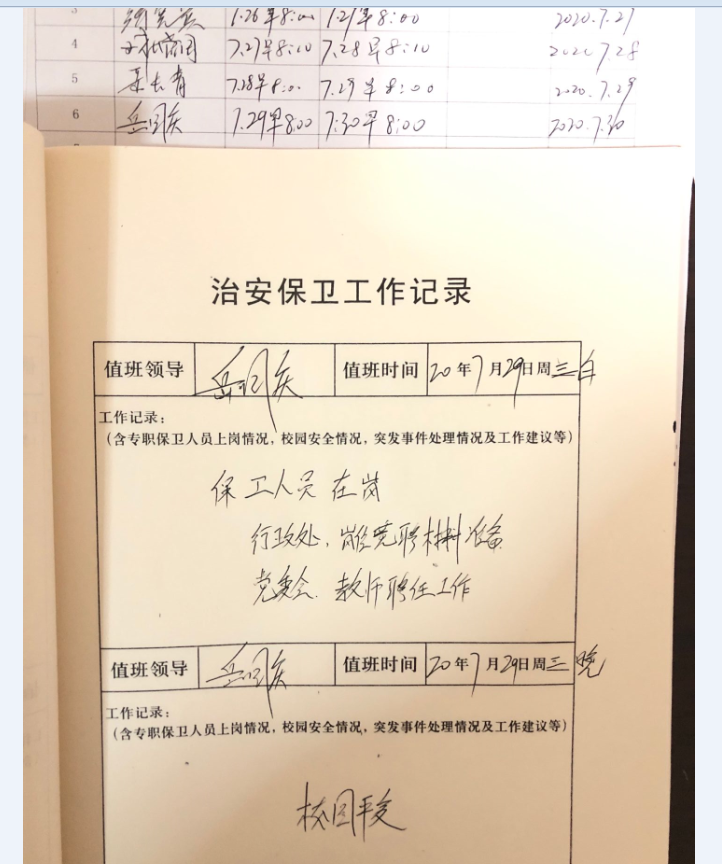 7.28早8:10
2020.7.28
5
7.29早8:00
2020.7.29
6 岳国庆 7.29早8:00 7:30早8:00 2020.7.30
治安保卫工作记录
值班领导 岳国庆 值班时间 20年7月29日周三白
工作记录:
(含专职保卫人员上岗情况,校园安全情况,突发事件处理情况及工作建议等)
保卫人员在岗
行政处、竞聘材料准备
党委会、教师聘任工作
值班领导 岳国庆 值班时间 20年7月29日周三晚
工作记录:
(含专职保卫人员上岗情况,校园安全情况,突发事件处理情况及工作建议等)
校园平安